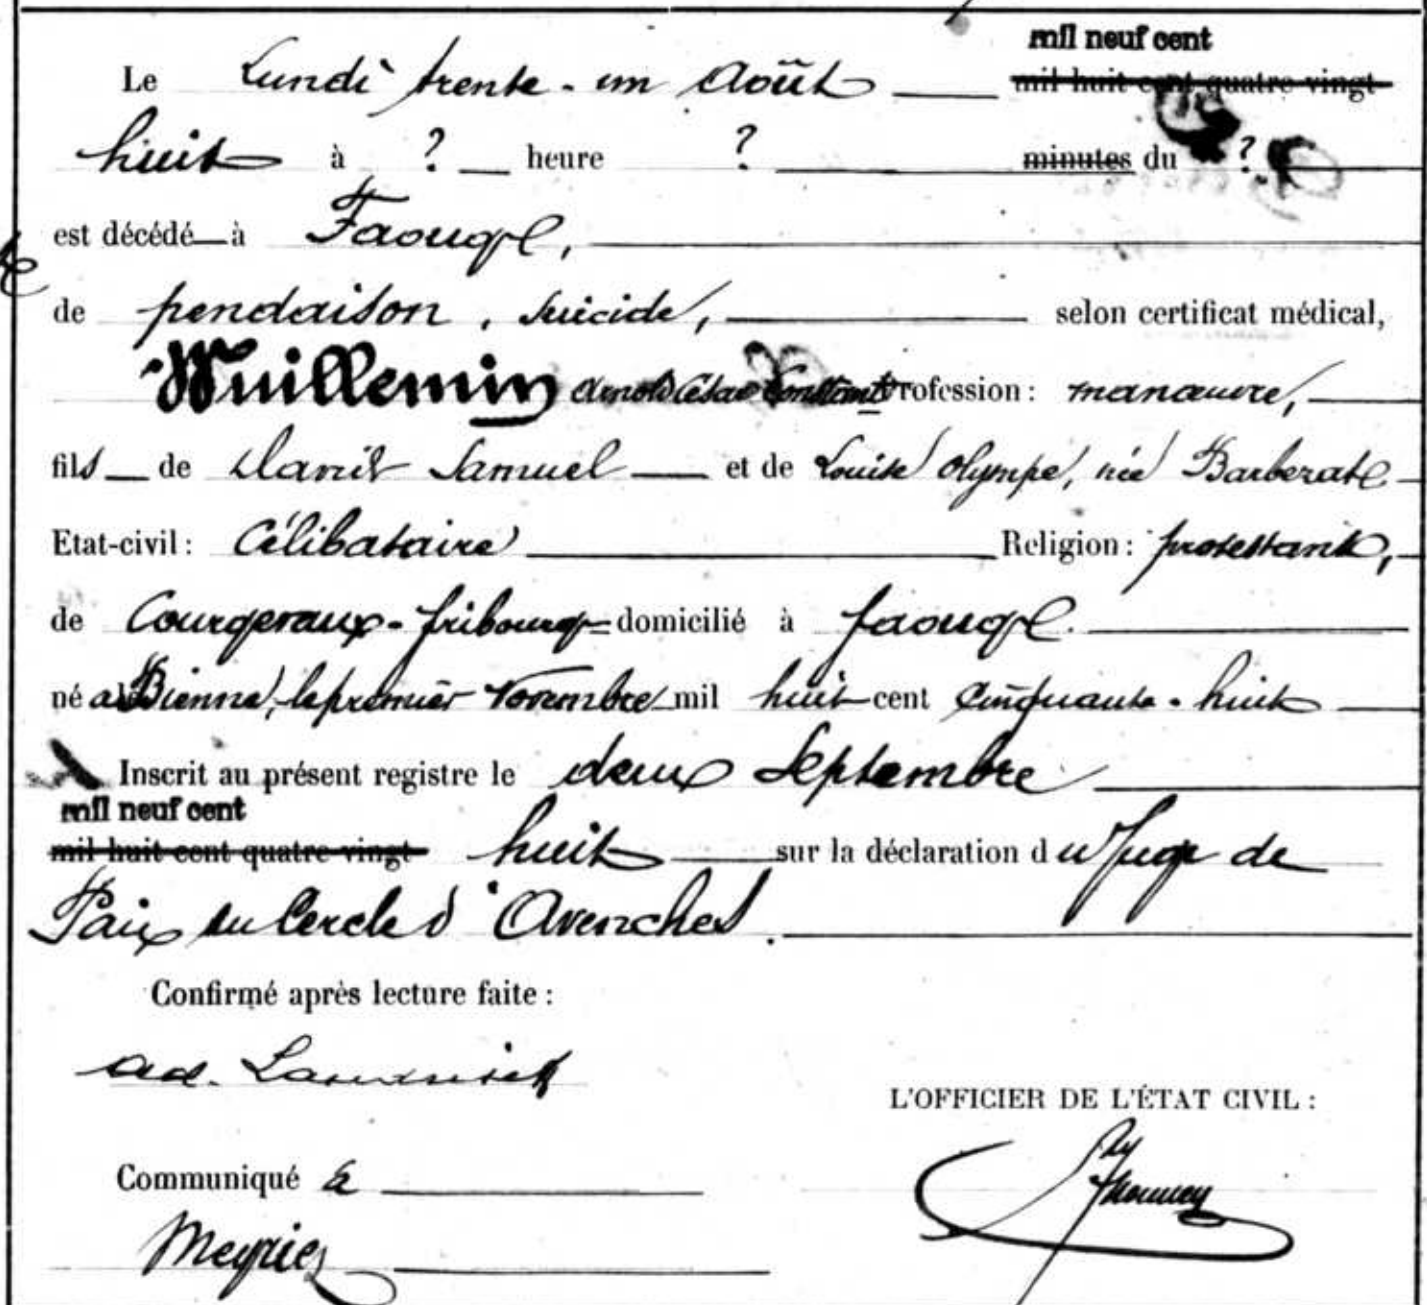 mil neuf cent
Le Lundi trente-un Août mil huit cent quatre-vingt
huit à ? heure ? minutes du ?
est décédé à Faoug,
de pendaison, suicide, selon certificat médical,
Wuillemin Arnold César Constant Profession : manœuvre,
fils de David Samuel et de Louise Olympe, née Barberat
Etat-civil : Célibataire Religion : protestante,
de Courgevaux-fribourg domicilié à faoug
né à Bienne, le premier Novembre mil huit cent cinquante-huit
Inscrit au présent registre le deux Septembre
mil neuf cent
mil huit cent quatre-vingt huit sur la déclaration du Juge de
Paix du Cercle d'Avenches.
Confirmé après lecture faite :
Ad.
L'OFFICIER DE L'ÉTAT CIVIL :
Communiqué à
Meyriez